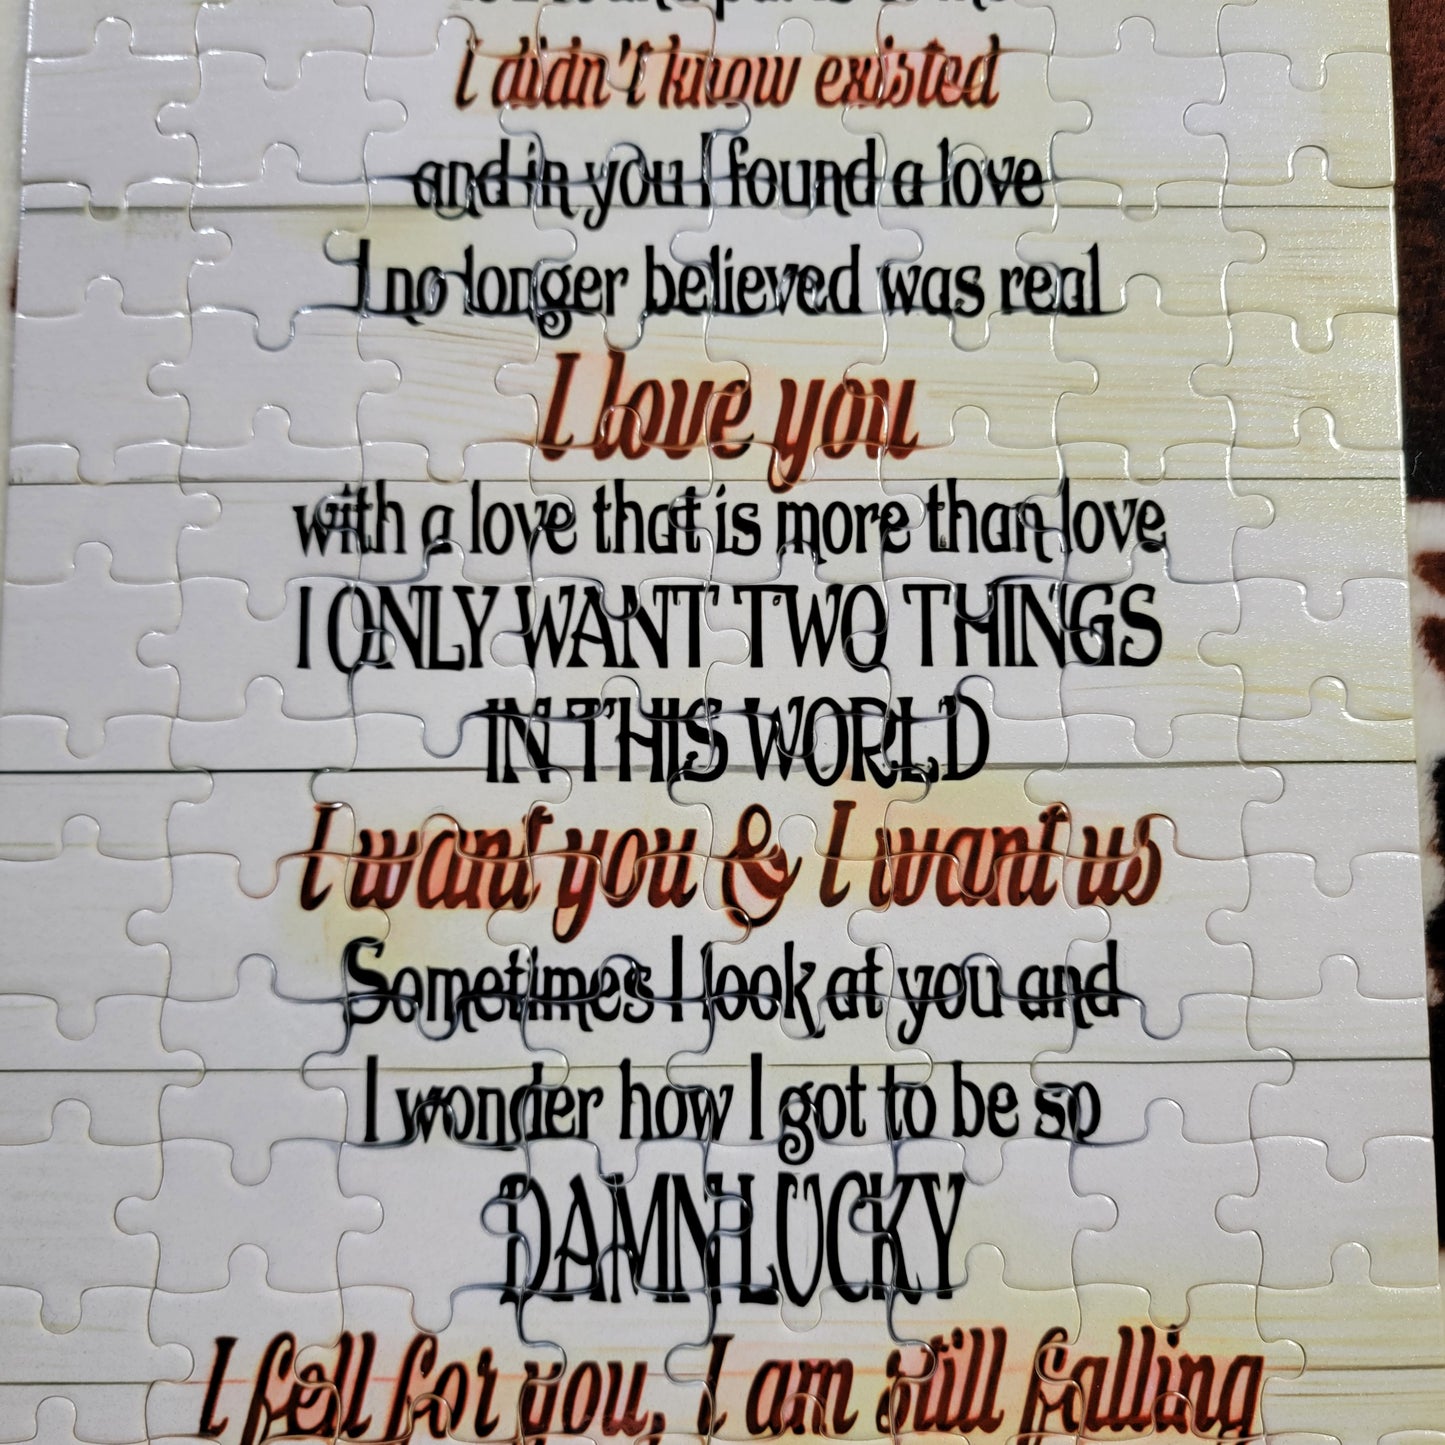 I didn't know existed
and in you I found a love
I no longer believed was real
I love you
with a love that is more than love
I ONLY WANT TWO THINGS
IN THIS WORLD
I want you & I want us
Sometimes I look at you and
I wonder how I got to be so
DAMN LUCKY
I fell for you, I am still falling